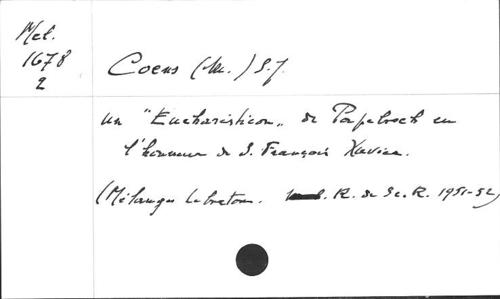 Mel.
1678
2
Coens (M.) S.J.
Un "Eucharisticon" de Papebroch en
l'honneur de S. François Xavier.
(Mélanges Lebreton. R. de Sc. R. 1951-52)